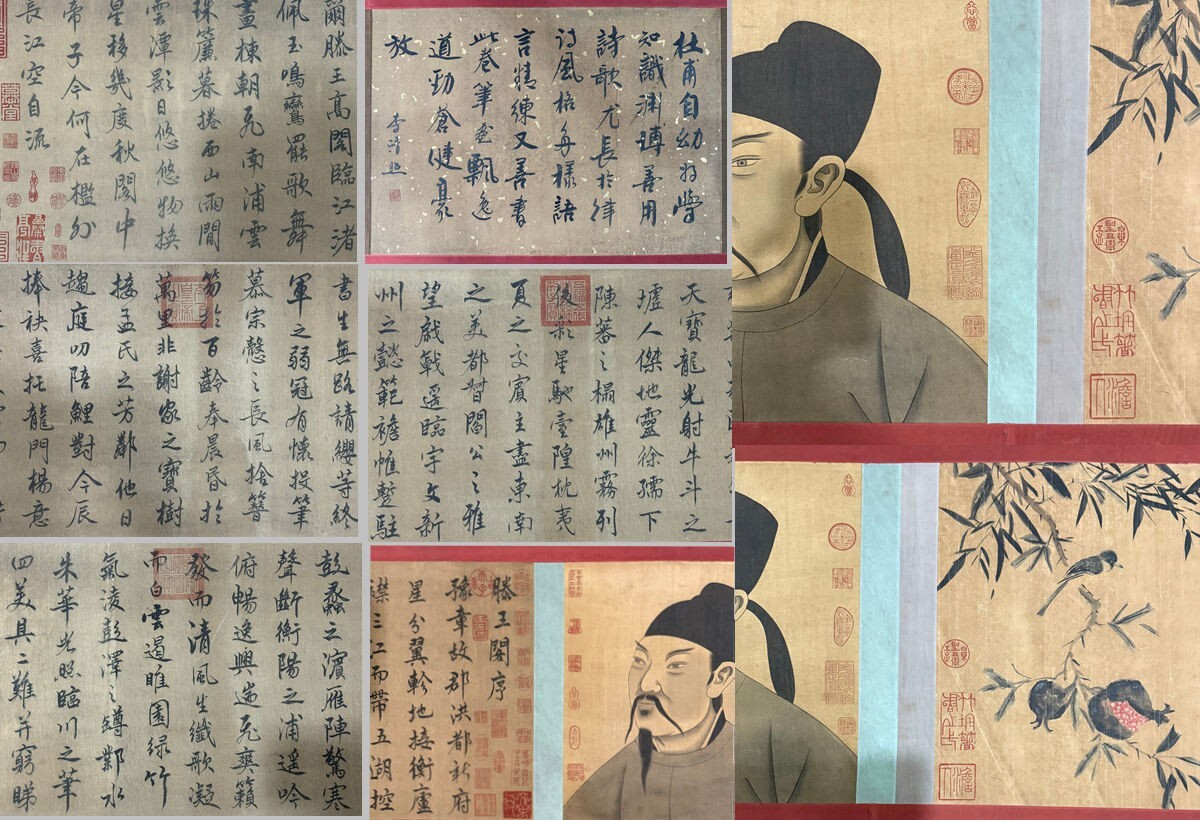 爾滕王高閣臨江渚
佩玉鳴鸞罷歌舞
畫棟朝飛南浦雲
珠簾暮捲西山雨閒
雲潭影日悠悠物換
星移幾度秋閣中
帝子今何在檻外
長江空自流
杜甫自幼好學
知識淵博善用
詩歌尤長於律
詩風格多樣語
言精練又善書
此卷筆意飄逸
遒勁蒼健豪
放
書生無路請纓等終
軍之弱冠有懷投筆
慕宗愨之長風捨簪
笏於百齡奉晨昏於
萬里非謝家之寶樹
接孟氏之芳鄰他日
趨庭叨陪鯉對今辰
捧袂喜托龍門楊意
天寶龍光射牛斗之
墟人傑地靈徐孺下
陳蕃之榻雄州霧列
俊彩星馳臺隍枕夷
夏之交賓主盡東南
之美都督閻公之雅
望戟遥臨宇文新
州之懿範襜帷蹔駐
彭蠡之濱雁陣驚寒
聲斷衡陽之浦遥吟
俯暢逸興遄飛爽籟
發而清風生纖歌凝
而白雲遏睢園緑竹
氣凌彭澤之罇鄴水
朱華光照臨川之筆
四美具二難并窮睇
滕王閣序
豫章故郡洪都新府
星分翼軫地接衡廬
襟三江而帶五湖控